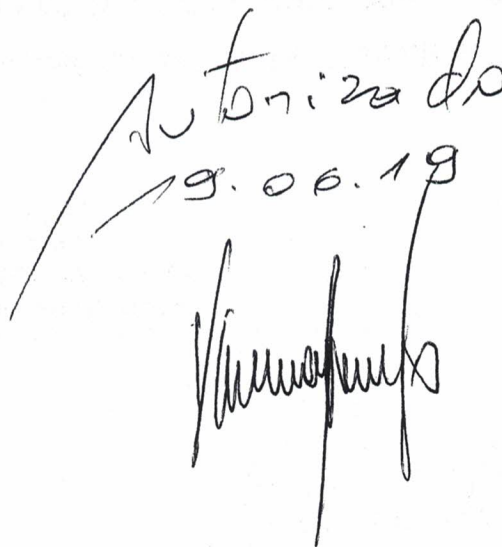 Autorizado
19.06.19